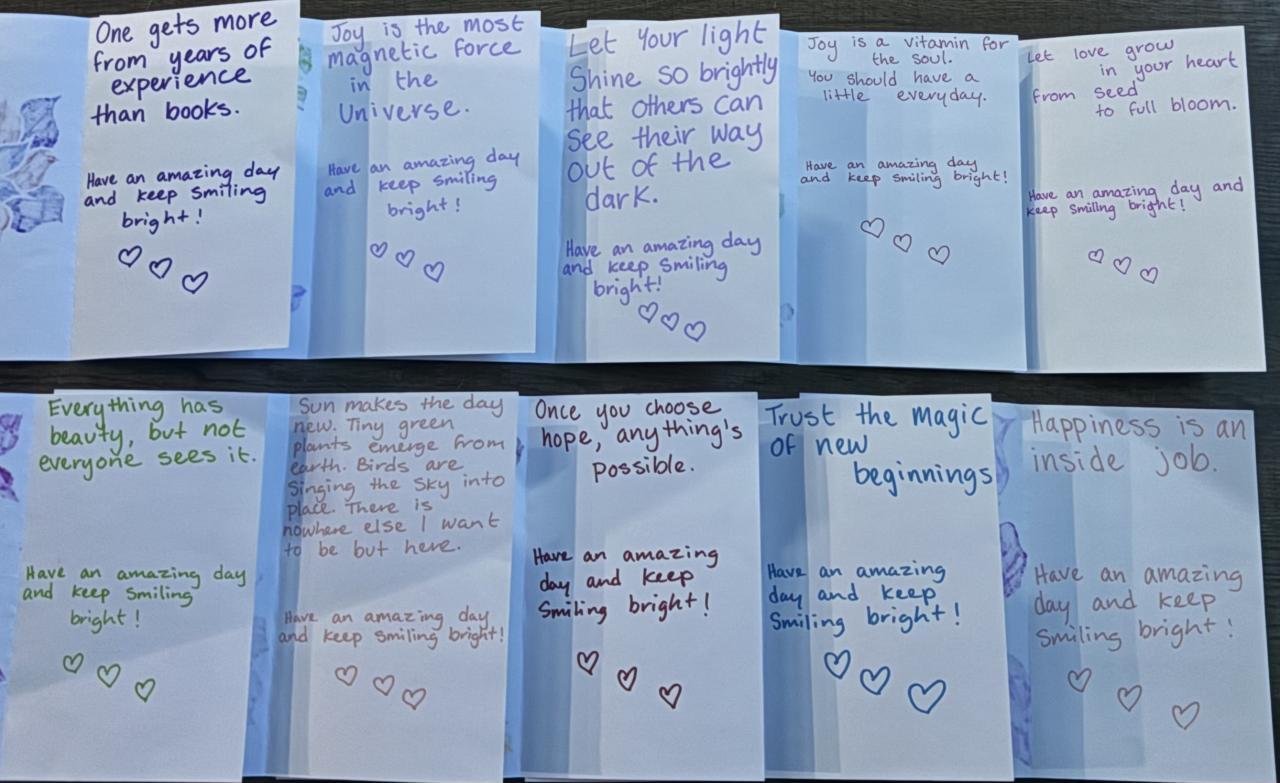 One gets more
from years of
experience
than books.
Have an amazing day
and keep smiling
bright!
Joy is the most
magnetic force
in the
Universe.
Have an amazing day
and keep smiling
bright!
Let Your light
Shine so brightly
that others can
see their way
out of the
dark.
Have an amazing day
and keep smiling
bright!
Joy is a vitamin for
the soul.
You should have a
little everyday.
Have an amazing day
and keep smiling bright!
Let love grow
in your heart
from seed
to full bloom.
Have an amazing day and
keep smiling bright!
Everything has
beauty, but not
everyone sees it.
Have an amazing day
and keep smiling
bright!
Sun makes the day
new. Tiny green
plants emerge from
earth. Birds are
singing the sky into
place. There is
nowhere else I want
to be but here.
Have an amazing day
and keep smiling bright!
Once you choose
hope, anything's
possible.
Have an amazing
day and keep
smiling bright!
Trust the magic
of new
beginnings
Have an amazing
day and keep
smiling bright!
Happiness is an
inside job.
Have an amazing
day and keep
smiling bright!